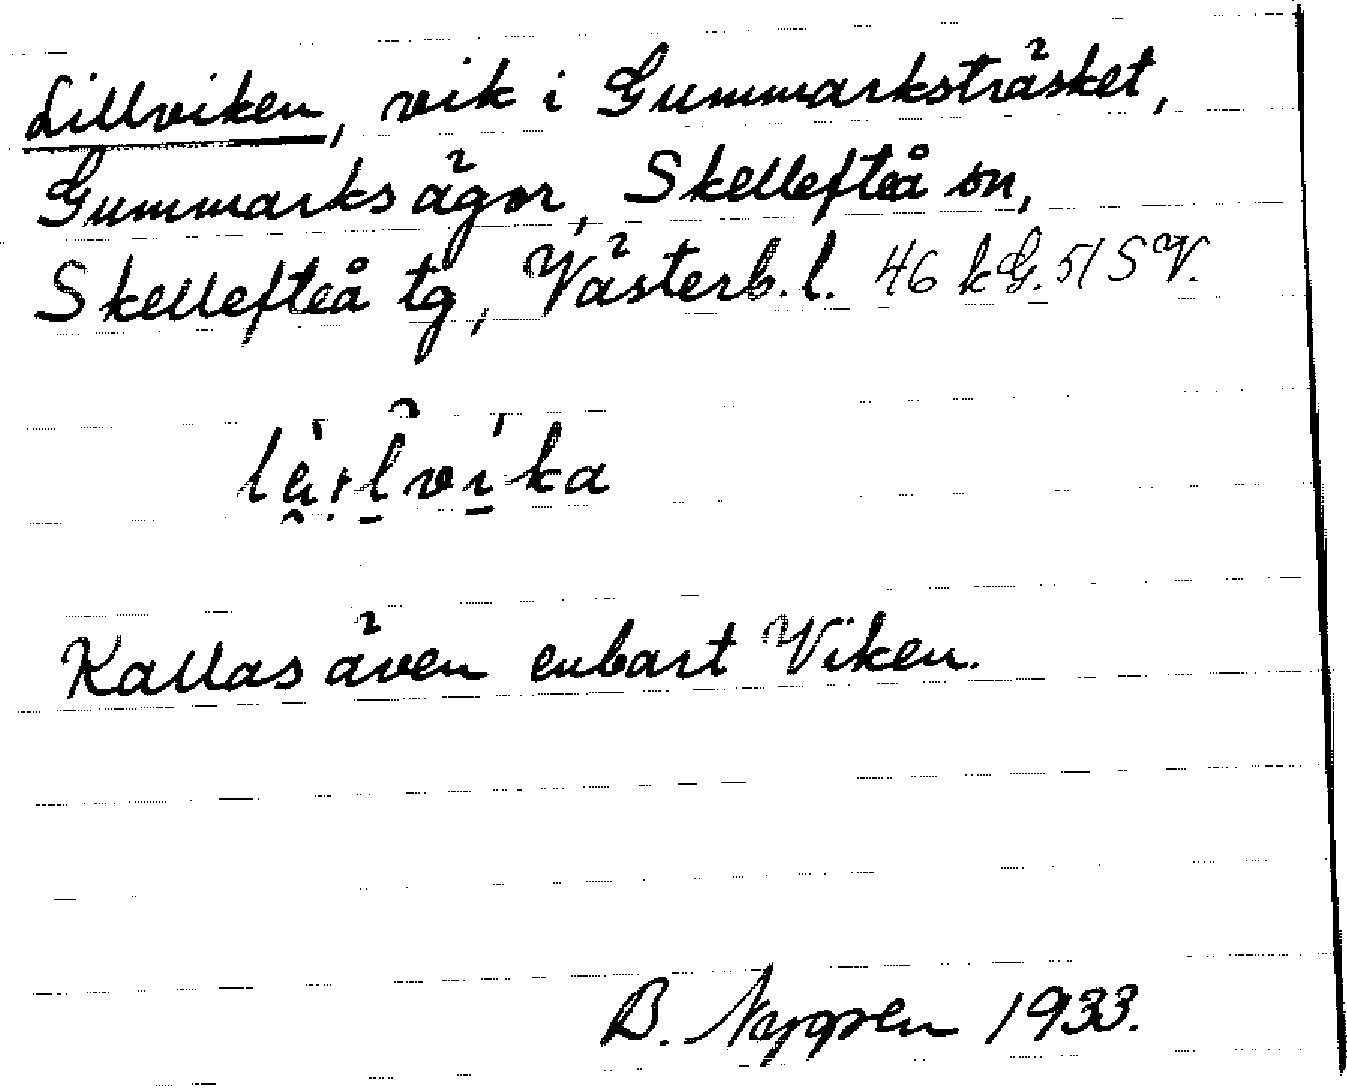 Lillviken, vik i Gummarksträsket,
Gummarks ägor, Skellefteå sn,
Skellefteå tg, Västerb. l. 46 kG. 51 S V.
Kallas även enbart Viken.
B. Nygren 1933.